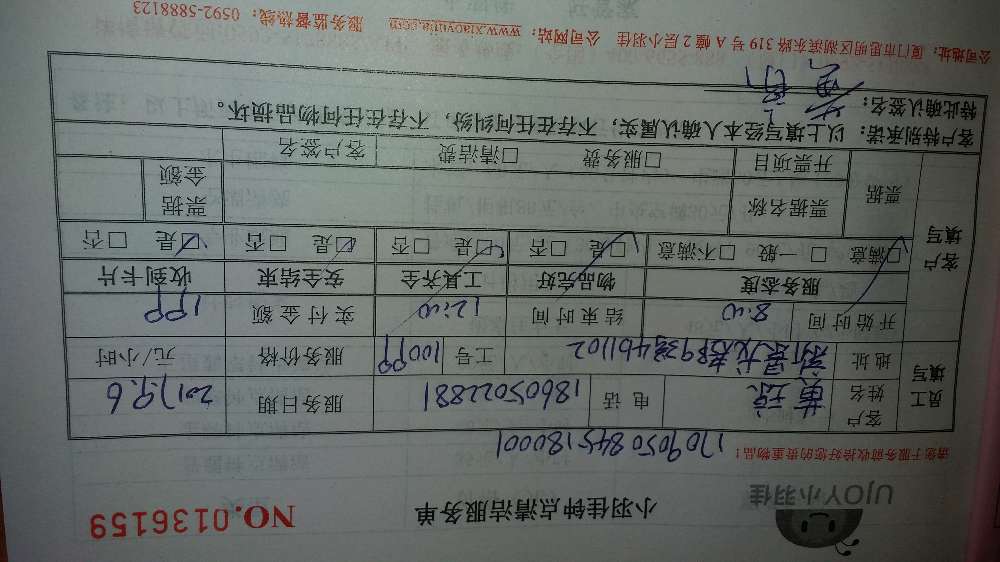 UJOY小羽佳
小羽佳钟点清洁服务单
NO.0136159
请您于服务前收拾好您的贵重物品！
1709050845180001
员工填写
客户姓名 黄琼 电话 18605022881 服务日期 2017.9.6
地址 401102 工号 100PP 服务价格 元/小时
开始时间 8:00 结束时间 12:00 实付金额 1PP
客户填写
服务态度 物品完好 工具齐全 安全结束 收到卡片
☑满意 □一般 □不满意 ☑是 □否 ☑是 □否 ☑是 □否 ☑是 □否
票据 票据名称 票据金额
开票项目 □服务费 □清洁费 客户签名
客户特别承诺：以上填写经本人确认属实，不存在任何纠纷，不存在任何物品损坏。
特此确认签名：
公司地址：厦门市思明区湖滨东路319号A幢2层小羽佳 公司网站：www.xiaoyujia.com 服务监督热线：0592-5888123